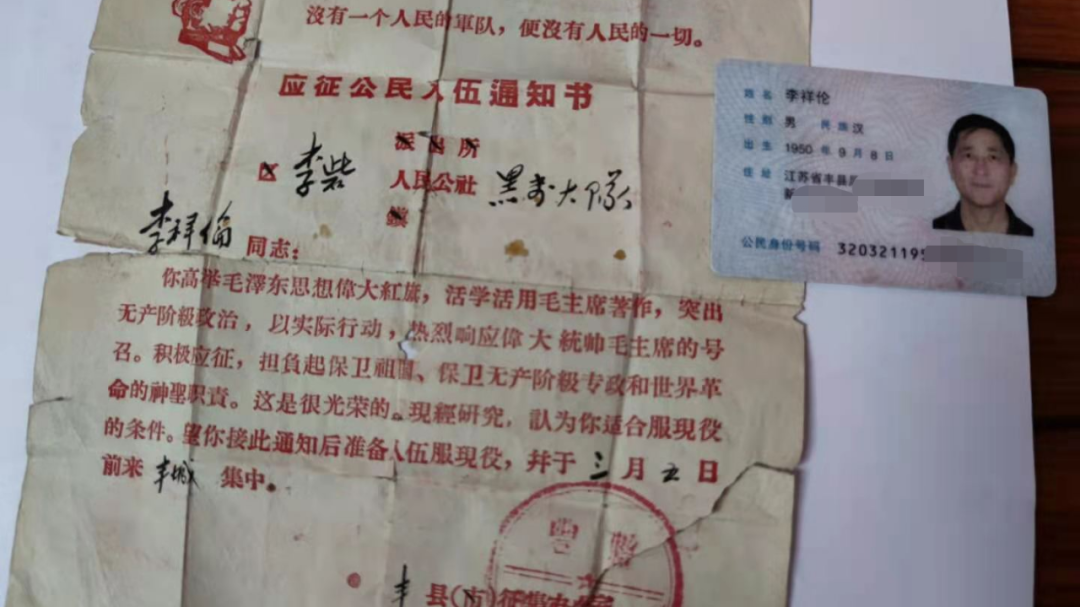 沒有一个人民的軍队，便沒有人民的一切。
应征公民入伍通知书
派出所
区 李砦 人民公社 黑李大隊
鎮
李祥倫 同志：
你高举毛澤东思想偉大紅旗，活学活用毛主席著作，突出
无产阶級政治，以实际行动，热烈响应偉大統帅毛主席的号
召。积极应征，担負起保卫祖国、保卫无产阶級专政和世界革
命的神聖职責。这是很光荣的。現經研究，認为你适合服現役
的条件。望你接此通知后准备入伍服現役，幷于 三 月 五 日
前来 丰城 集中。
丰 县(市)征
姓名 李祥伦
性别 男 民族 汉
出生 1950 年 9 月 8 日
住址 江苏省丰县
新
公民身份号码 320321195